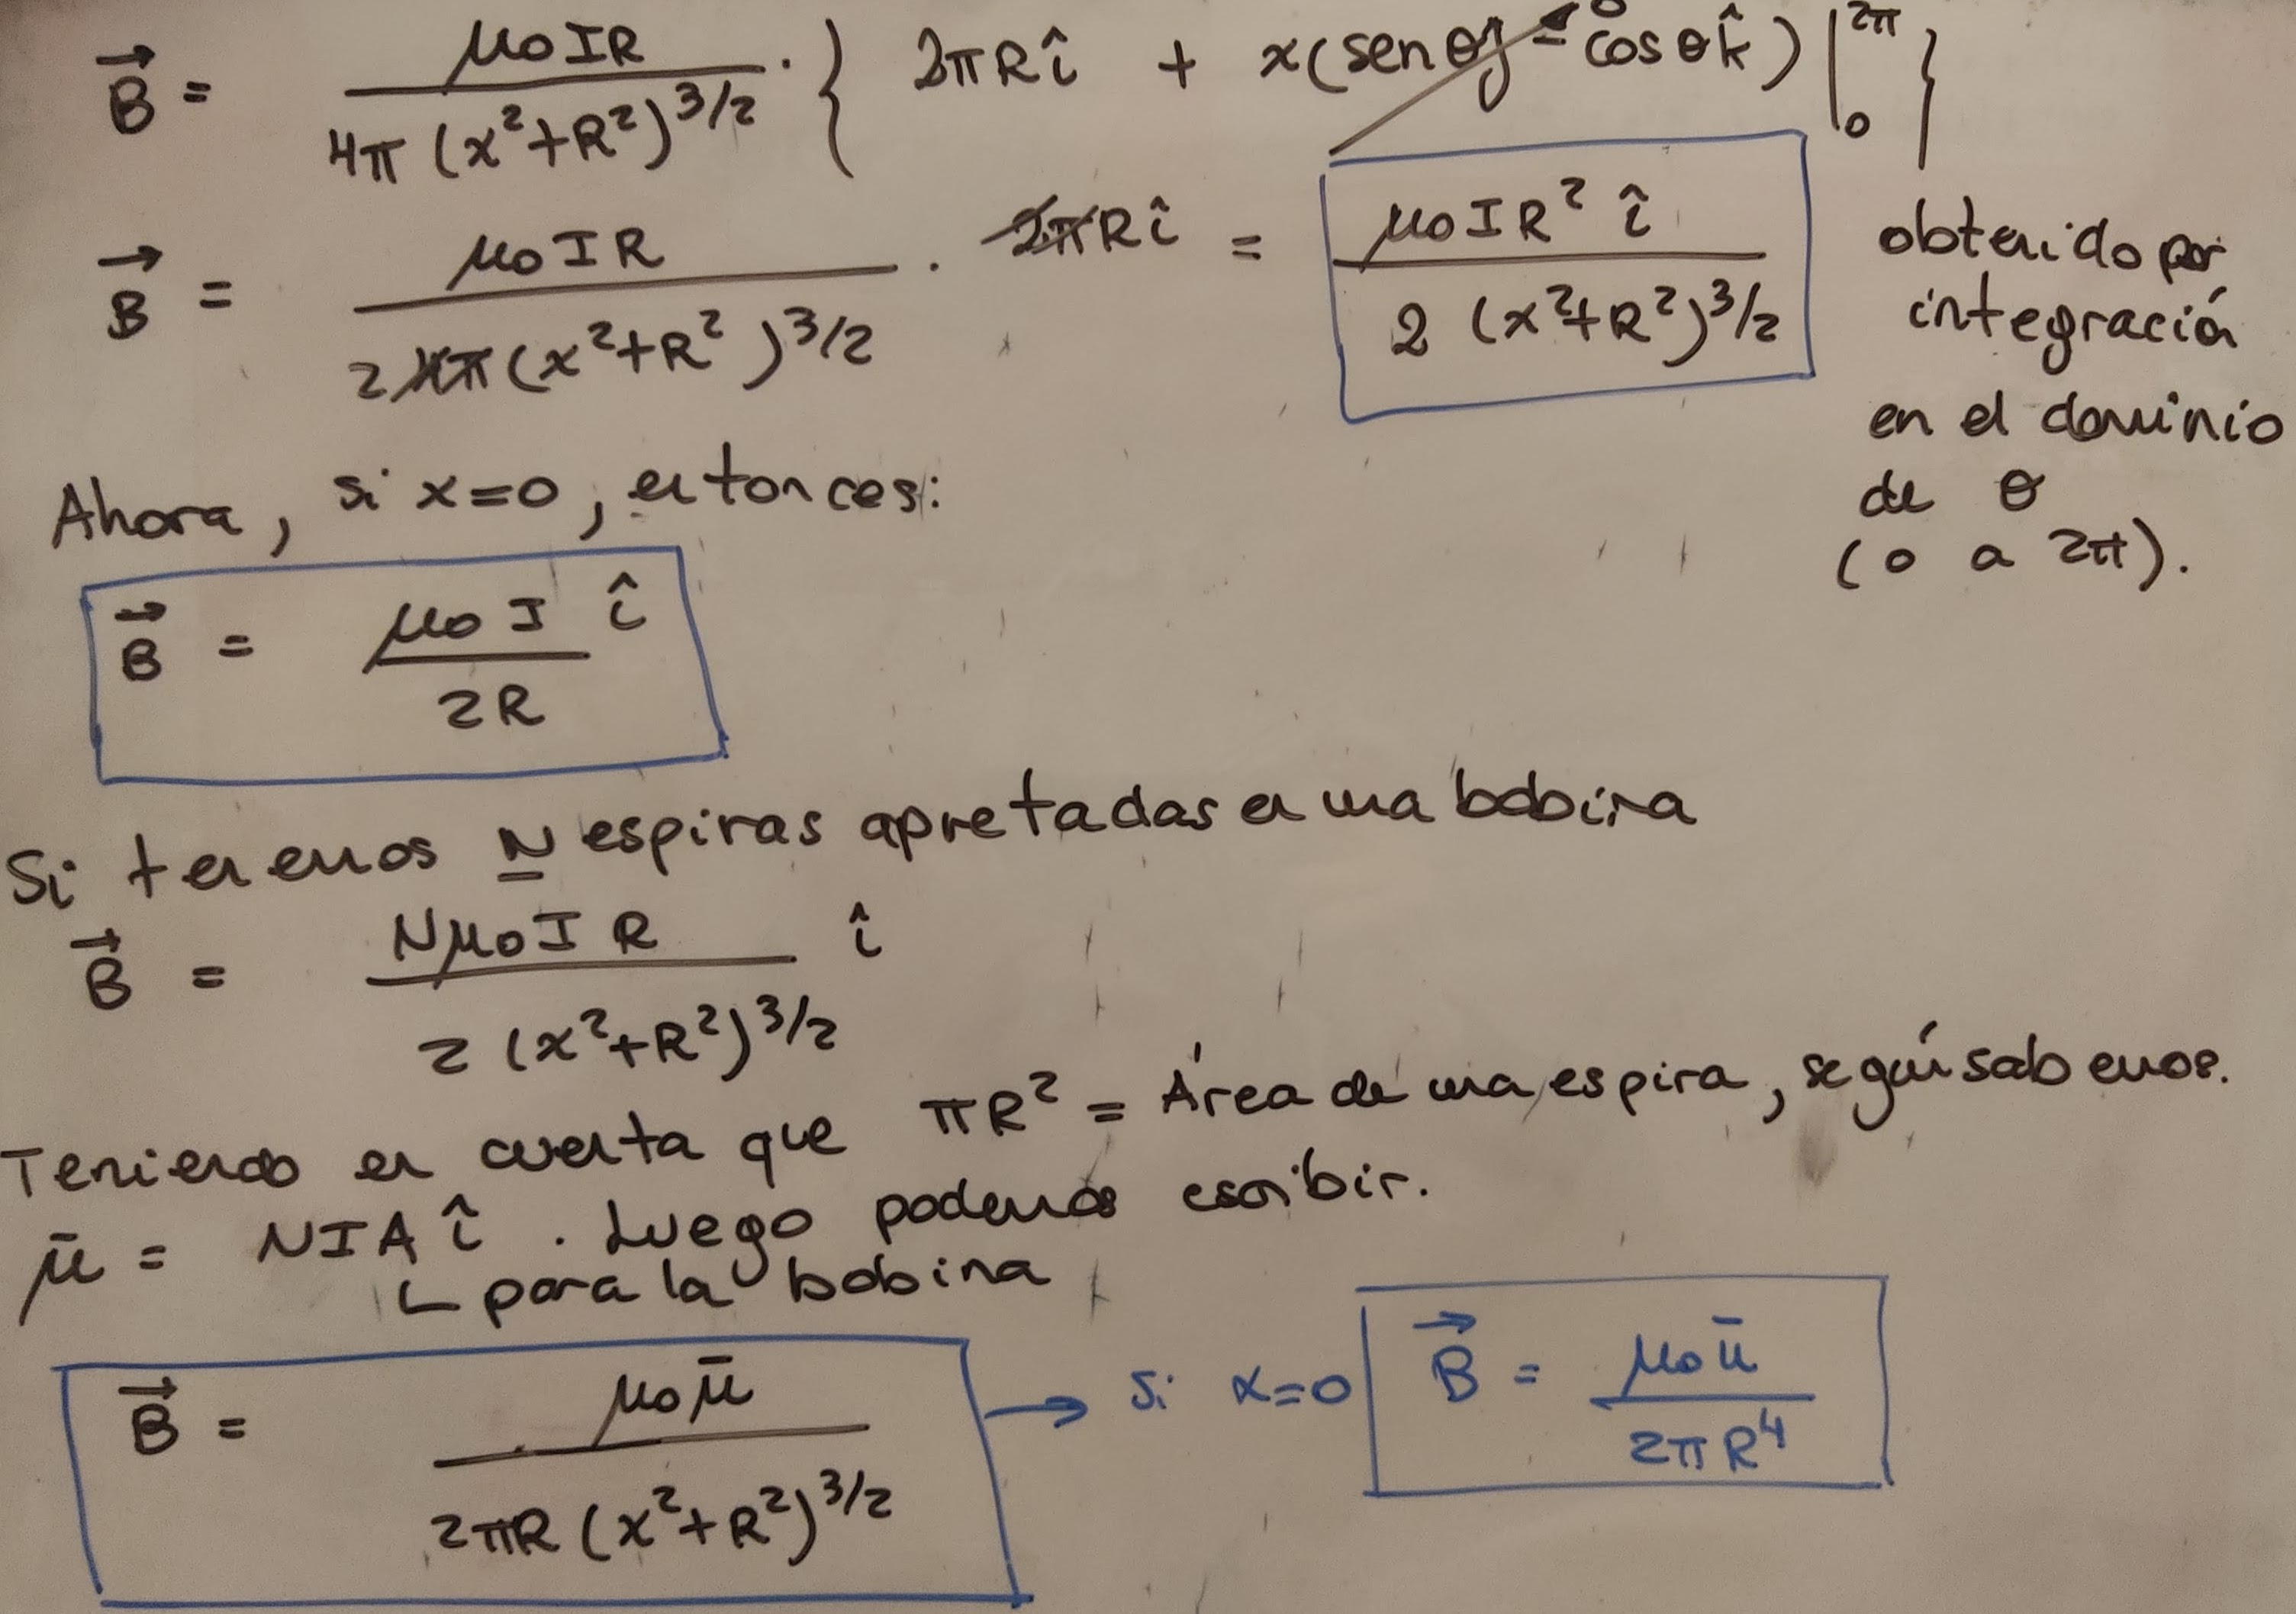 B⃗ = μ₀IR / 4π(x²+R²)^3/2 · { 2πRî + x(senθĵ - cosθk̂) |₀^2π }  0
B⃗ = μ₀IR / 2 4π(x²+R²)^3/2 · 2πRî = μ₀IR² î / 2 (x²+R²)^3/2
obtenido por
integración
en el dominio
de θ
(0 a 2π).
Ahora, si x=0, entonces:
B⃗ = μ₀I î / 2R
Si tenemos N espiras apretadas en una bobina
B⃗ = Nμ₀IR / 2 (x²+R²)^3/2 î
Teniendo en cuenta que πR² = Área de una espira, según sabemos.
μ̄ = NIA î. Luego podemos escribir.
↳ para la bobina
B⃗ = μ₀μ̄ / 2πR (x²+R²)^3/2 → Si x=0 B⃗ = μ₀μ̄ / 2πR⁴